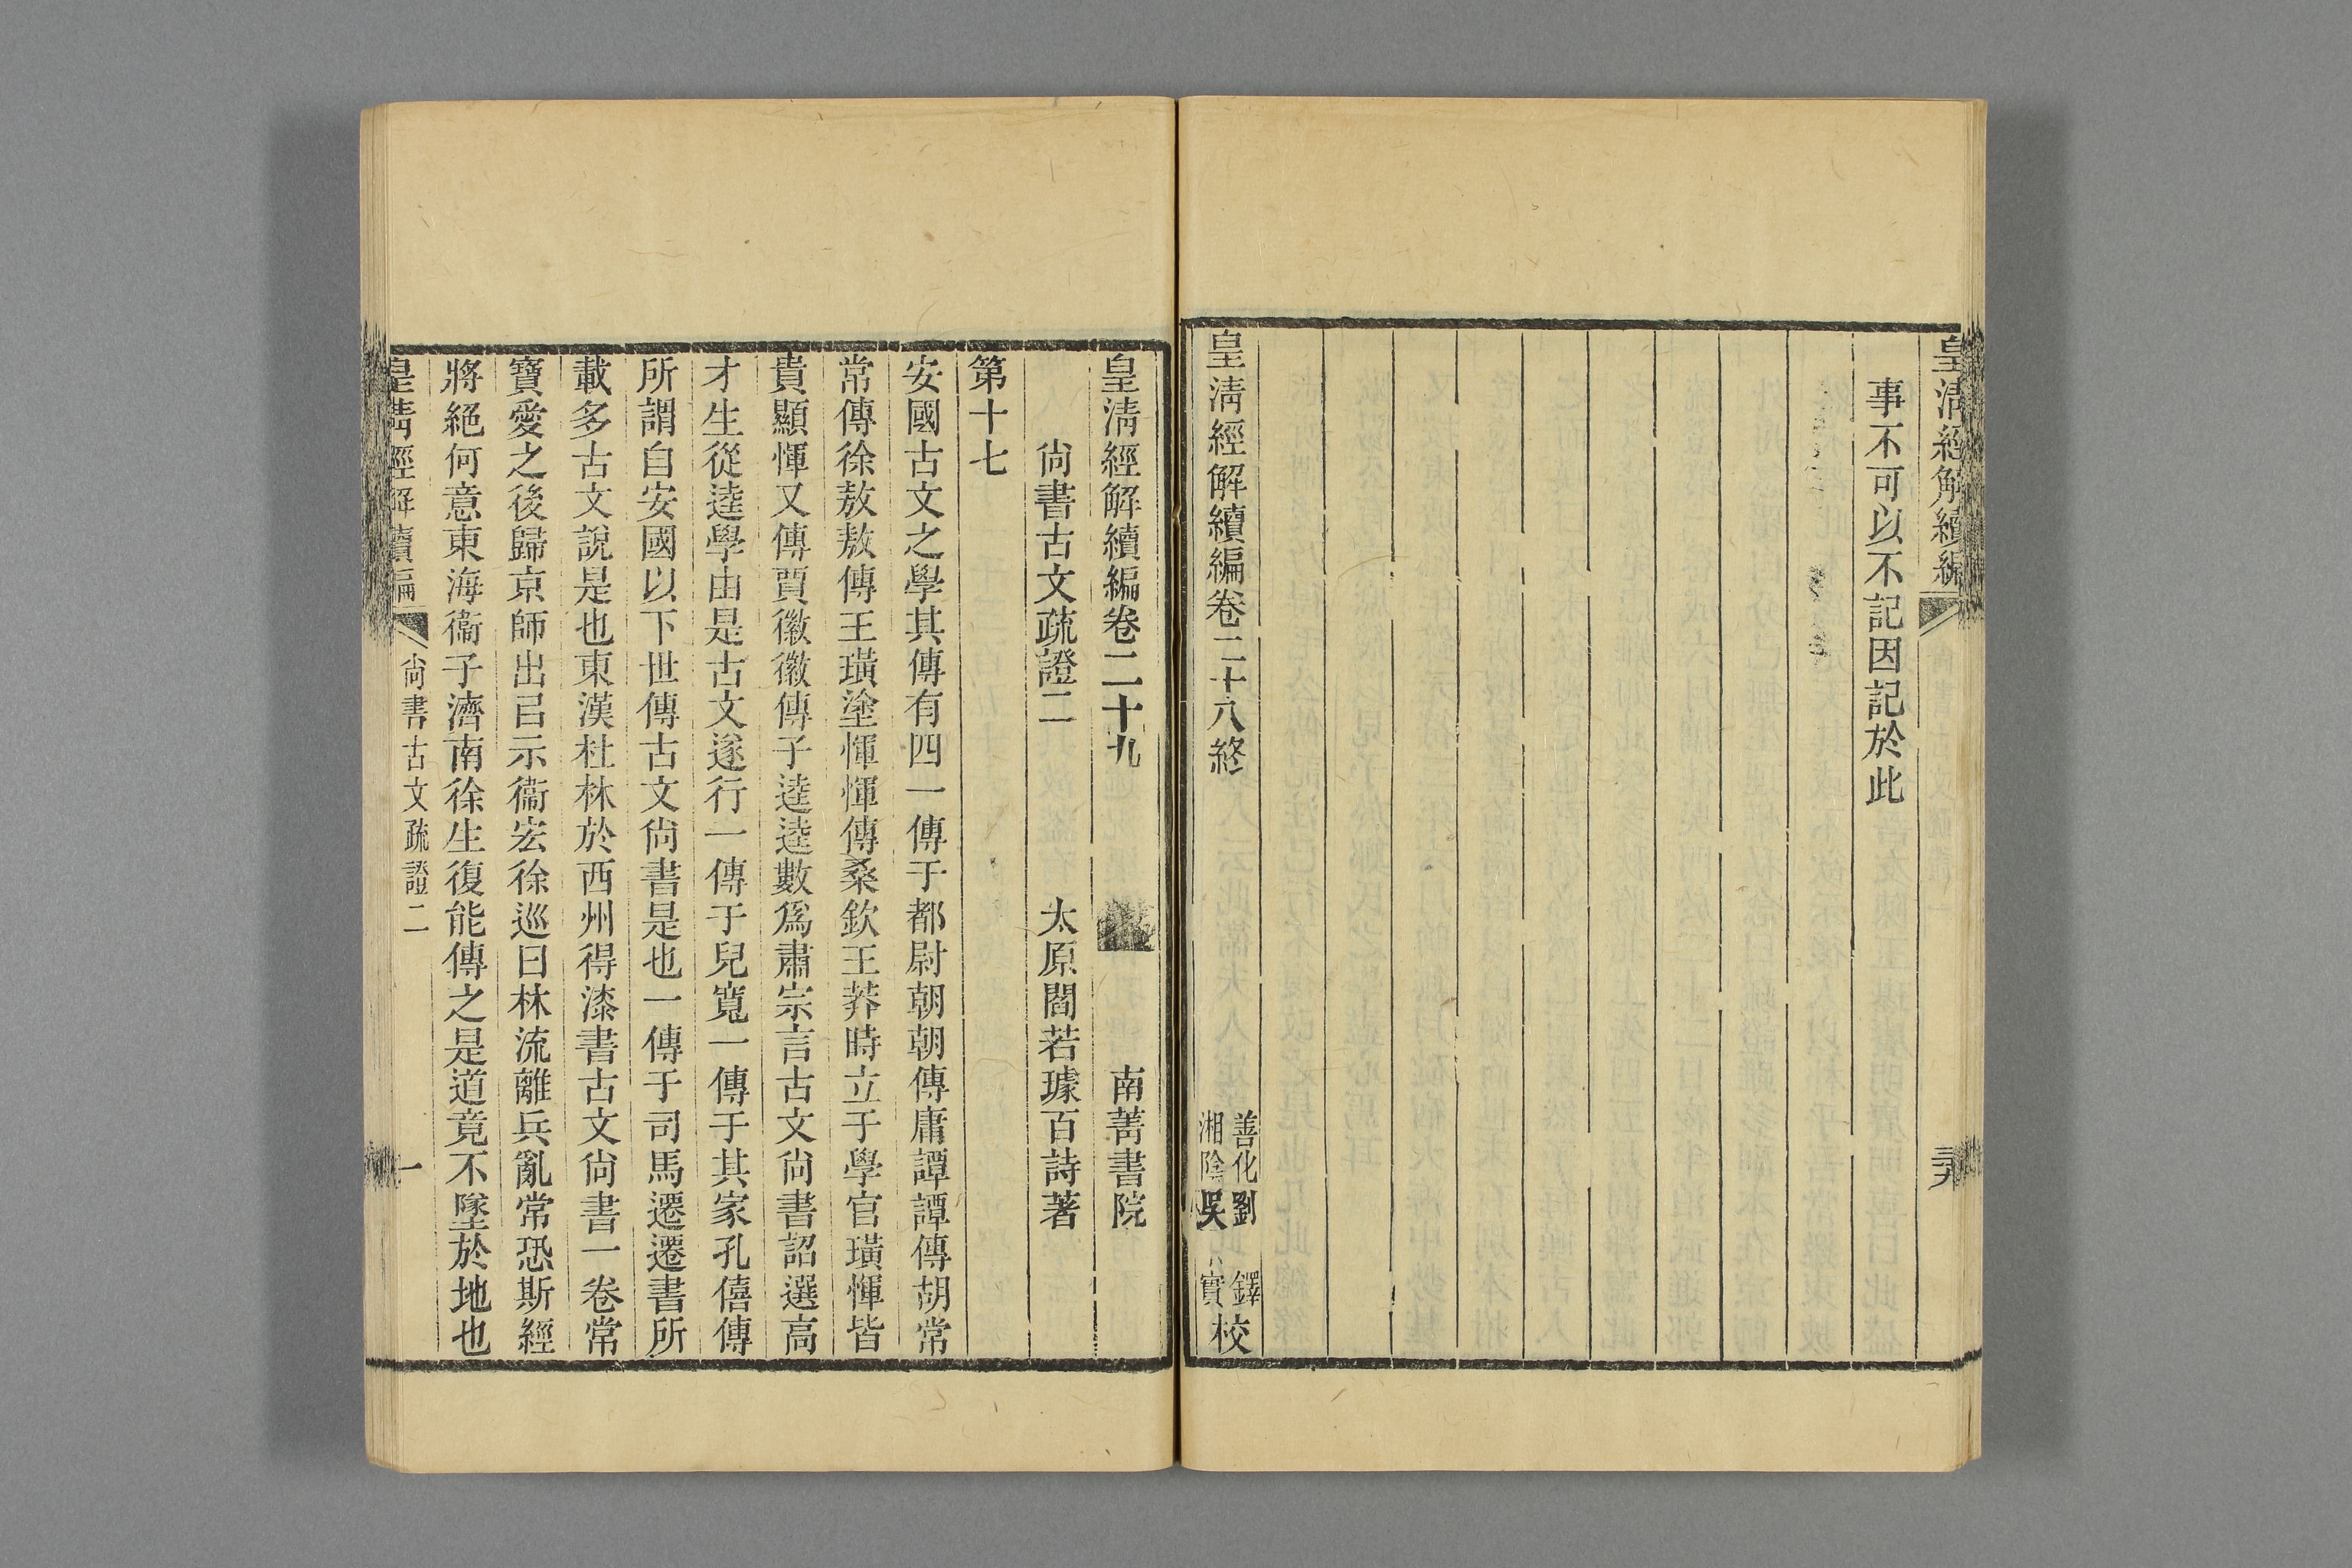 皇清經解續編
事不可以不記因記於此
皇清經解續編卷二十八終
善化劉鐸
湘陰吳實
校
皇清經解續編卷二十九
南菁書院
尚書古文疏證二
太原閻若璩百詩著
第十七
安國古文之學其傳有四一傳于都尉朝朝傳庸譚譚傳胡常
常傳徐敖敖傳王璜塗惲惲傳桑欽王莽時立于學官璜惲皆
貴顯惲又傳賈徽徽傳子逵逵數爲肅宗言古文尚書詔選高
才生從逵學由是古文遂行一傳于兒寬一傳于其家孔僖傳
所謂自安國以下世傳古文尚書是也一傳于司馬遷遷書所
載多古文說是也東漢杜林於西州得漆書古文尚書一卷常
寶愛之後歸京師出吕示衞宏徐巡曰林流離兵亂常恐斯經
將絕何意東海衞子濟南徐生復能傳之是道竟不墜於地也
皇清經解續編
尚書古文疏證二
一